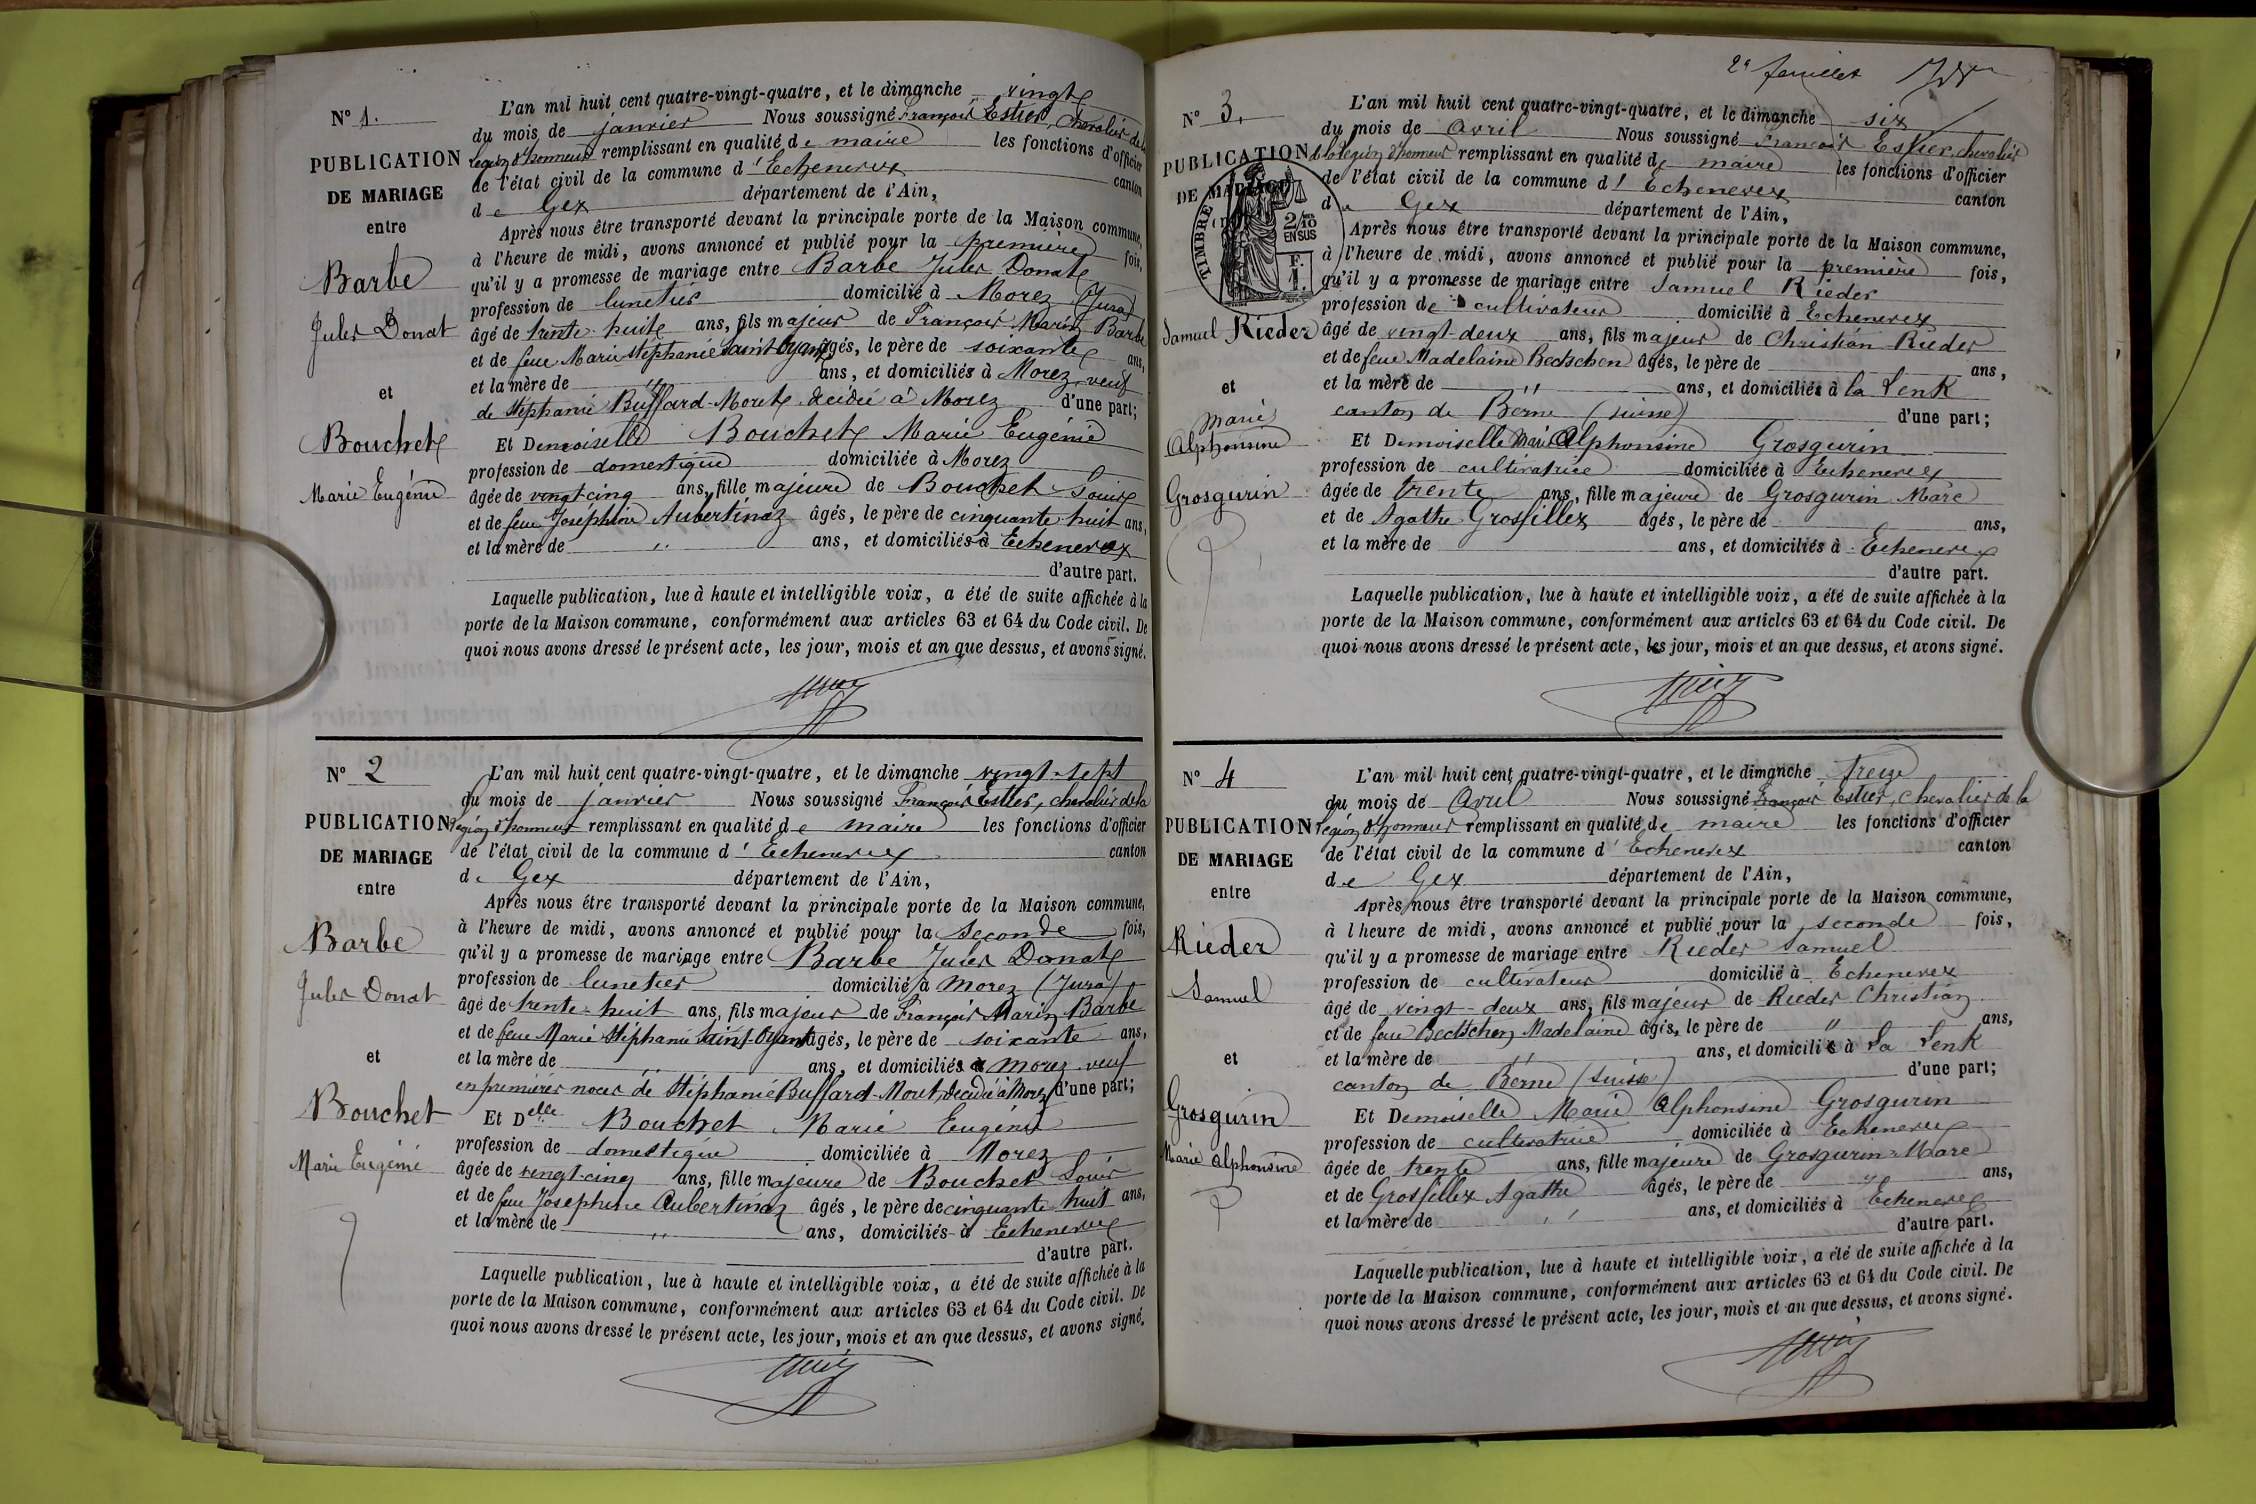 N° 1.
PUBLICATION
DE MARIAGE
entre
Barbe
Jules Donat
et
Bouchet
Marie Eugénie
L'an mil huit cent quatre-vingt-quatre, et le dimanche vingt
du mois de janvier Nous soussigné François Estier, chevalier de la
légion d'honneur remplissant en qualité de maire les fonctions d'officier
de l'état civil de la commune d'Echenevex canton
de Gex département de l'Ain,
Après nous être transporté devant la principale porte de la Maison commune,
à l'heure de midi, avons annoncé et publié pour la première fois,
qu'il y a promesse de mariage entre Barbe Jules Donat
profession de lunetier domicilié à Morez (Jura)
âgé de trente-huit ans, fils majeur de François Marin Barbe
et de feue Marie Stéphanie Saint-Oyant âgés, le père de soixante ans,
et la mère de " ans, et domiciliés à Morez, veuf
de Stéphanie Buffard-Moret décédée à Morez d'une part;
Et Demoiselle Bouchet Marie Eugénie
profession de domestique domiciliée à Morez
âgée de vingt-cinq ans, fille majeure de Bouchet Louis
et de feue Joséphine Aubertinaz âgés, le père de cinquante huit ans,
et la mère de " ans, et domiciliés à Echenevex
d'autre part.
Laquelle publication, lue à haute et intelligible voix, a été de suite affichée à la
porte de la Maison commune, conformément aux articles 63 et 64 du Code civil. De
quoi nous avons dressé le présent acte, les jour, mois et an que dessus, et avons signé.
N° 2
PUBLICATION
DE MARIAGE
entre
Barbe
Jules Donat
et
Bouchet
Marie Eugénie
L'an mil huit cent quatre-vingt-quatre, et le dimanche vingt-sept
du mois de janvier Nous soussigné François Estier, chevalier de la
légion d'honneur remplissant en qualité de maire les fonctions d'officier
de l'état civil de la commune d'Echenevex canton
de Gex département de l'Ain,
Après nous être transporté devant la principale porte de la Maison commune,
à l'heure de midi, avons annoncé et publié pour la seconde fois,
qu'il y a promesse de mariage entre Barbe Jules Donat
profession de lunetier domicilié à Morez (Jura)
âgé de trente-huit ans, fils majeur de François Marin Barbe
et de feue Marie Stéphanie Saint-Oyant âgés, le père de soixante ans,
et la mère de " ans, et domiciliés à Morez veuf
en premières noces de Stéphanie Buffard-Moret, décédée à Morez d'une part;
Et Delle Bouchet Marie Eugénie
profession de domestique domiciliée à Morez
âgée de vingt-cinq ans, fille majeure de Bouchet Louis
et de feue Josephine Aubertinaz âgés, le père de cinquante huit ans,
et la mère de " ans, domiciliés à Echenevex
d'autre part.
Laquelle publication, lue à haute et intelligible voix, a été de suite affichée à la
porte de la Maison commune, conformément aux articles 63 et 64 du Code civil. De
quoi nous avons dressé le présent acte, les jour, mois et an que dessus, et avons signé.
2e feuillet
N° 3.
PUBLICATION
DE MARIAGE
TIMBRE
2/10 EN SUS
F. 1.
Samuel Rieder
et
Marie
Alphonsine
Grosgurin
L'an mil huit cent quatre-vingt-quatre, et le dimanche six
du mois de Avril Nous soussigné François Estier, chevalier
de la légion d'honneur remplissant en qualité de maire les fonctions d'officier
de l'état civil de la commune d'Echenevex canton
de Gex département de l'Ain,
Après nous être transporté devant la principale porte de la Maison commune,
à l'heure de midi, avons annoncé et publié pour la première fois,
qu'il y a promesse de mariage entre Samuel Rieder
profession de cultivateur domicilié à Echenevex
âgé de vingt-deux ans, fils majeur de Christian Rieder
et de feue Madelaine Bectschen âgés, le père de ans,
et la mère de " ans, et domiciliés à la Lenk
canton de Berne (suisse) d'une part;
Et Demoiselle Marie Alphonsine Grosgurin
profession de cultivatrice domiciliée à Echenevex
âgée de trente ans, fille majeure de Grosgurin Marc
et de Agathe Grosfillex âgés, le père de ans,
et la mère de ans, et domiciliés à Echenevex
d'autre part.
Laquelle publication, lue à haute et intelligible voix, a été de suite affichée à la
porte de la Maison commune, conformément aux articles 63 et 64 du Code civil. De
quoi nous avons dressé le présent acte, les jour, mois et an que dessus, et avons signé.
N° 4
PUBLICATION
DE MARIAGE
entre
Rieder
Samuel
et
Grosgurin
Marie Alphonsine
L'an mil huit cent quatre-vingt-quatre, et le dimanche treize
du mois de Avril Nous soussigné François Estier, chevalier de la
légion d'honneur remplissant en qualité de maire les fonctions d'officier
de l'état civil de la commune d'Echenevex canton
de Gex département de l'Ain,
Après nous être transporté devant la principale porte de la Maison commune,
à l'heure de midi, avons annoncé et publié pour la seconde fois,
qu'il y a promesse de mariage entre Rieder Samuel
profession de cultivateur domicilié à Echenevex
âgé de vingt-deux ans, fils majeur de Rieder Christian
et de feue Bectschen Madelaine âgés, le père de " ans,
et la mère de " ans, et domiciliés à La Lenk
canton de Berne (suisse) d'une part;
Et Demoiselle Marie Alphonsine Grosgurin
profession de cultivatrice domiciliée à Echenevex
âgée de trente ans, fille majeure de Grosgurin Marc
et de Grosfillex Agathe âgés, le père de " ans,
et la mère de " ans, et domiciliés à Echenevex
d'autre part.
Laquelle publication, lue à haute et intelligible voix, a été de suite affichée à la
porte de la Maison commune, conformément aux articles 63 et 64 du Code civil. De
quoi nous avons dressé le présent acte, les jour, mois et an que dessus, et avons signé.